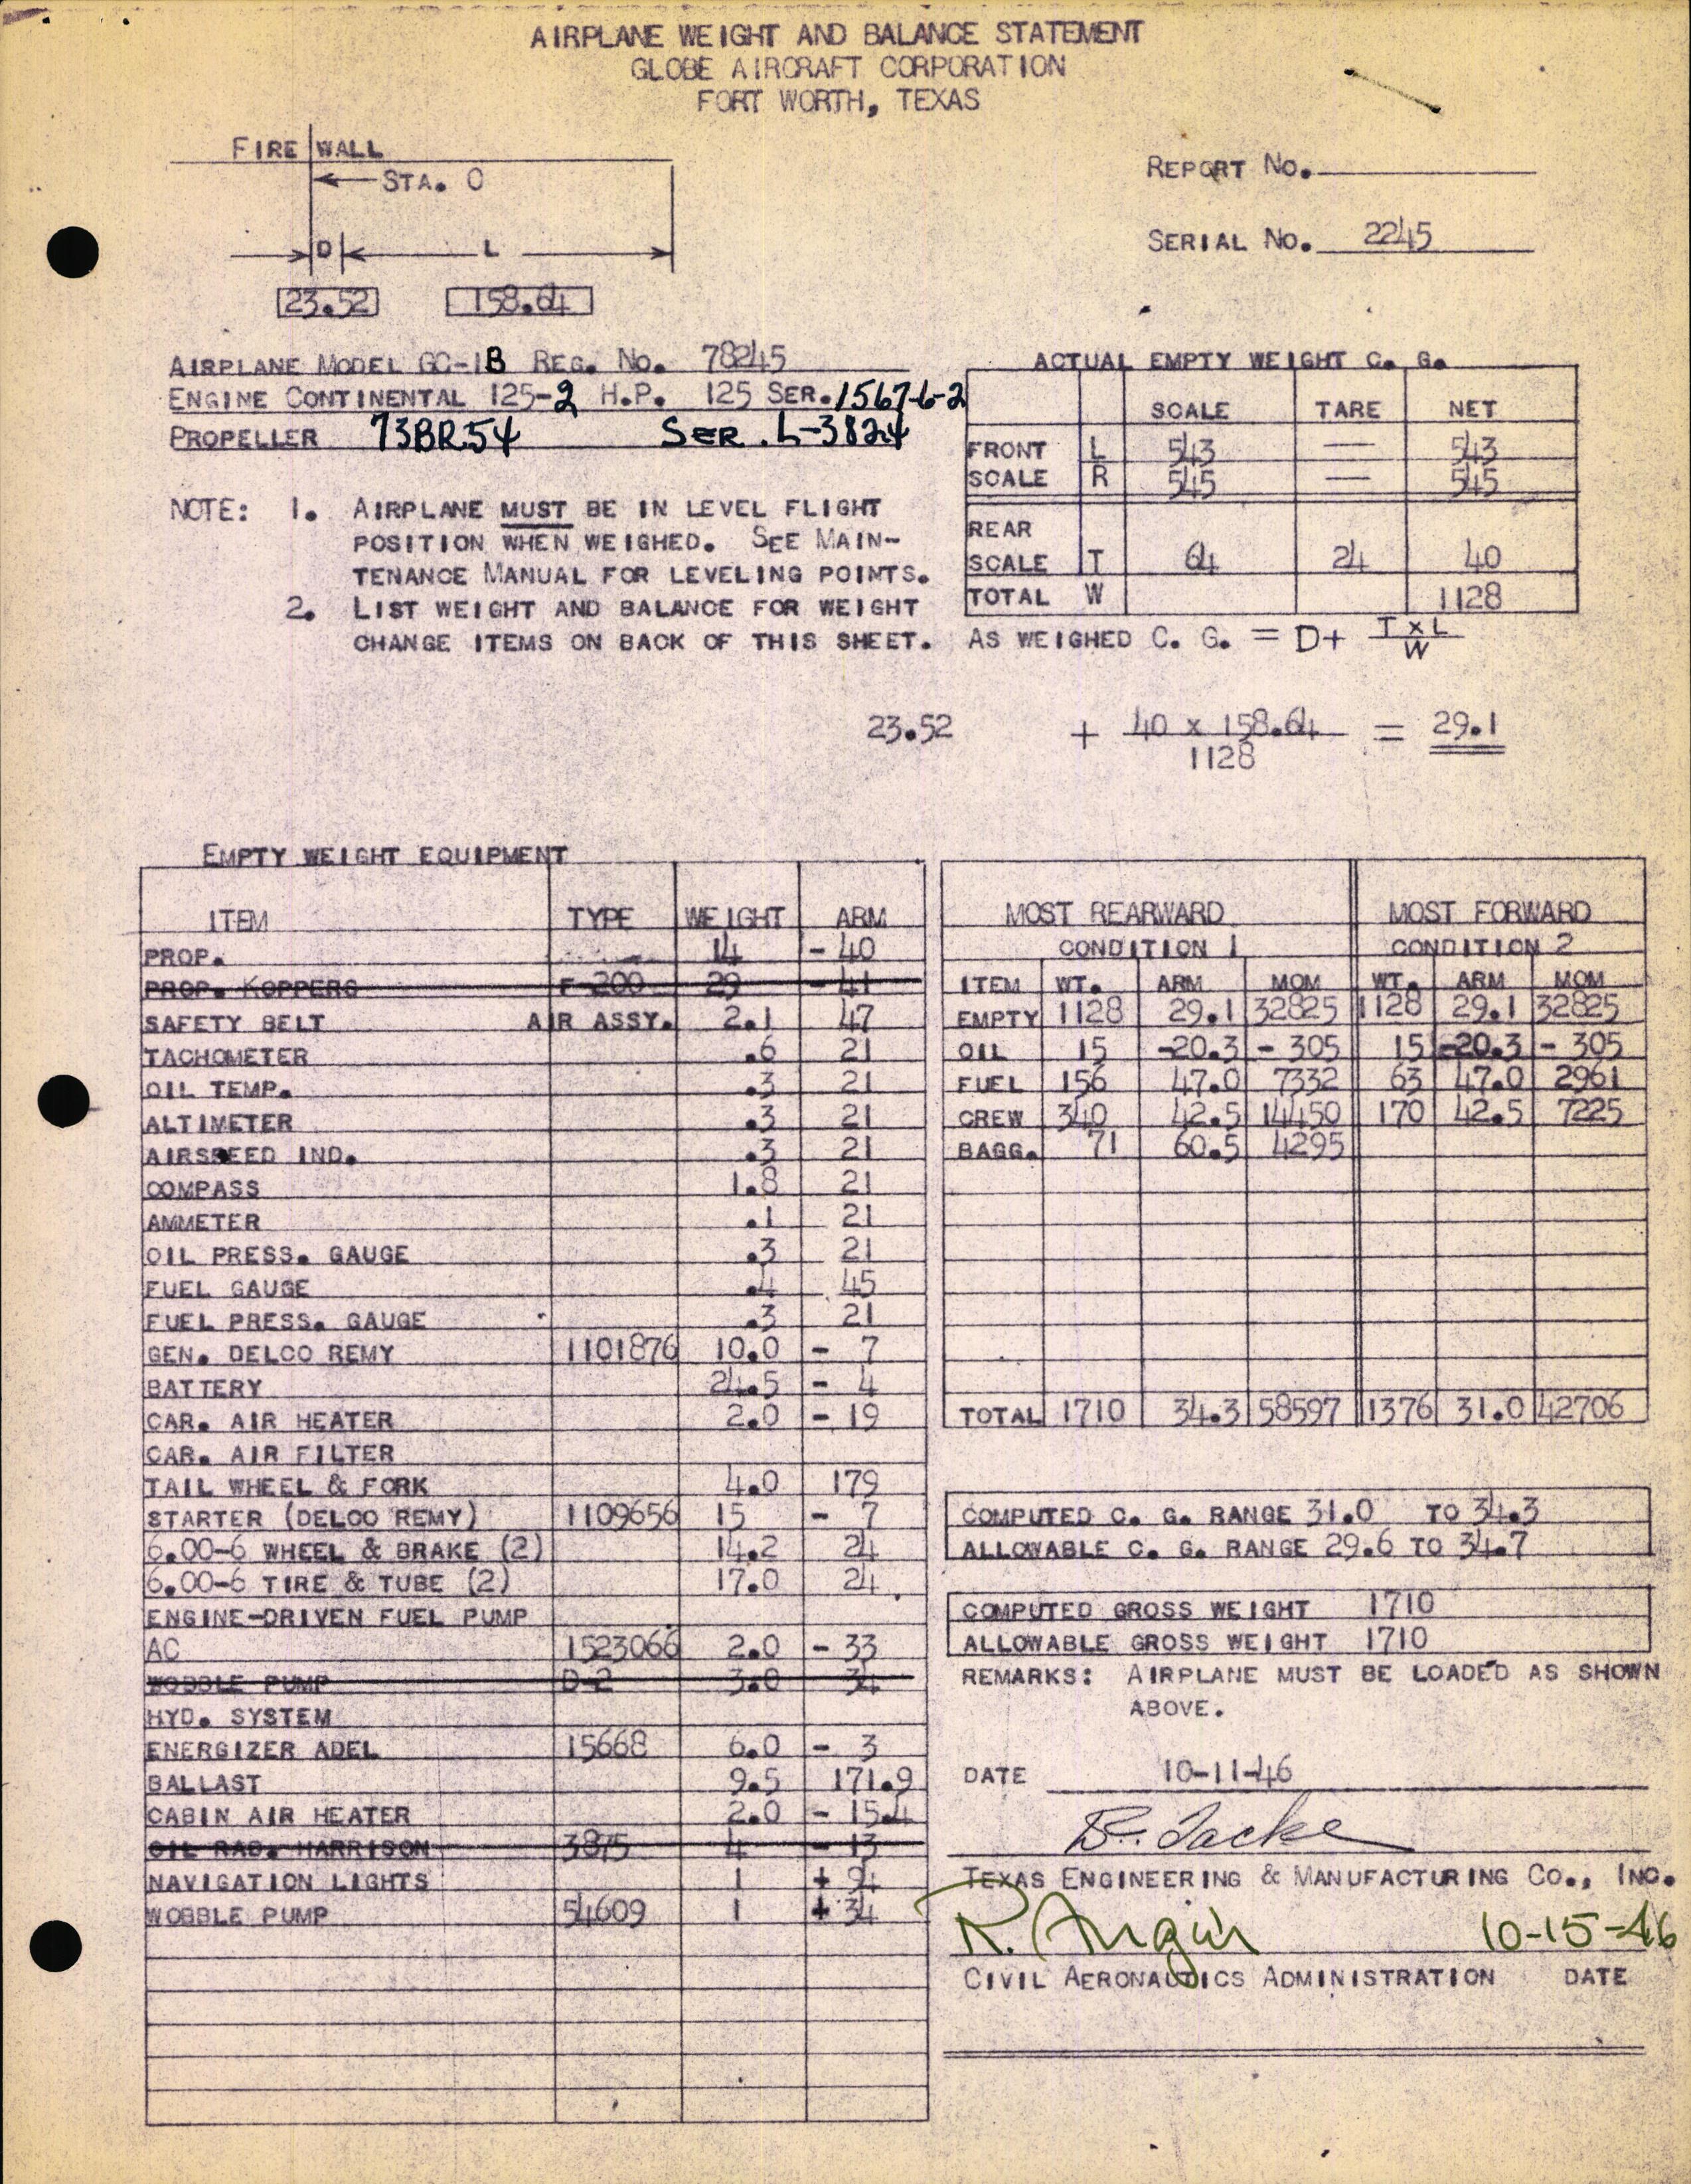 AIRPLANE WEIGHT AND BALANCE STATEMENT
GLOBE AIRCRAFT CORPORATION
FORT WORTH, TEXAS
FIRE WALL
STA. 0
D L
23.52 158.64
REPORT NO.
SERIAL NO. 2245
AIRPLANE MODEL GC-1B REG. NO. 78245
ENGINE CONTINENTAL 125-2 H.P. 125 SER. 15676-2
PROPELLER 73BR54 SER. L-3824
NOTE: 1. AIRPLANE MUST BE IN LEVEL FLIGHT
POSITION WHEN WEIGHED. SEE MAIN-
TENANCE MANUAL FOR LEVELING POINTS.
2. LIST WEIGHT AND BALANCE FOR WEIGHT
CHANGE ITEMS ON BACK OF THIS SHEET.
ACTUAL EMPTY WEIGHT C. G.
SCALE TARE NET
FRONT L 543 — 543
SCALE R 545 — 545
REAR
SCALE T 64 24 40
TOTAL W 1128
AS WEIGHED C. G. = D+ T x L
W
23.52 + 40 x 158.64 = 29.1
1128
EMPTY WEIGHT EQUIPMENT
ITEM TYPE WEIGHT ARM
PROP. 14 - 40
PROP. KOPPERS F-200 29 - 41
SAFETY BELT AIR ASSY. 2.1 47
TACHOMETER .6 21
OIL TEMP. .3 21
ALTIMETER .3 21
AIRSPEED IND. .3 21
COMPASS 1.8 21
AMMETER .1 21
OIL PRESS. GAUGE .3 21
FUEL GAUGE .4 45
FUEL PRESS. GAUGE .3 21
GEN. DELCO REMY 1101876 10.0 - 7
BATTERY 24.5 - 4
CAR. AIR HEATER 2.0 - 19
CAR. AIR FILTER
TAIL WHEEL & FORK 4.0 179
STARTER (DELCO REMY) 1109656 15 - 7
6.00-6 WHEEL & BRAKE (2) 14.2 24
6.00-6 TIRE & TUBE (2) 17.0 24
ENGINE-DRIVEN FUEL PUMP
AC 1523066 2.0 - 33
WOBBLE PUMP D-2 3.0 34
HYD. SYSTEM
ENERGIZER ADEL 15668 6.0 - 3
BALLAST 9.5 171.9
CABIN AIR HEATER 2.0 - 15.4
OIL RAD. HARRISON 3875 4 - 13
NAVIGATION LIGHTS 1 + 94
WOBBLE PUMP 54609 1 + 34
MOST REARWARD MOST FORWARD
CONDITION 1 CONDITION 2
ITEM WT. ARM MOM WT. ARM MOM
EMPTY 1128 29.1 32825 1128 29.1 32825
OIL 15 -20.3 - 305 15 -20.3 - 305
FUEL 156 47.0 7332 63 47.0 2961
CREW 340 42.5 14450 170 42.5 7225
BAGG. 71 60.5 4295
TOTAL 1710 34.3 58597 1376 31.0 42706
COMPUTED C. G. RANGE 31.0 TO 34.3
ALLOWABLE C. G. RANGE 29.6 TO 34.7
COMPUTED GROSS WEIGHT 1710
ALLOWABLE GROSS WEIGHT 1710
REMARKS: AIRPLANE MUST BE LOADED AS SHOWN
ABOVE.
DATE 10-11-46
TEXAS ENGINEERING & MANUFACTURING CO., INC.
10-15-46
CIVIL AERONAUTICS ADMINISTRATION DATE